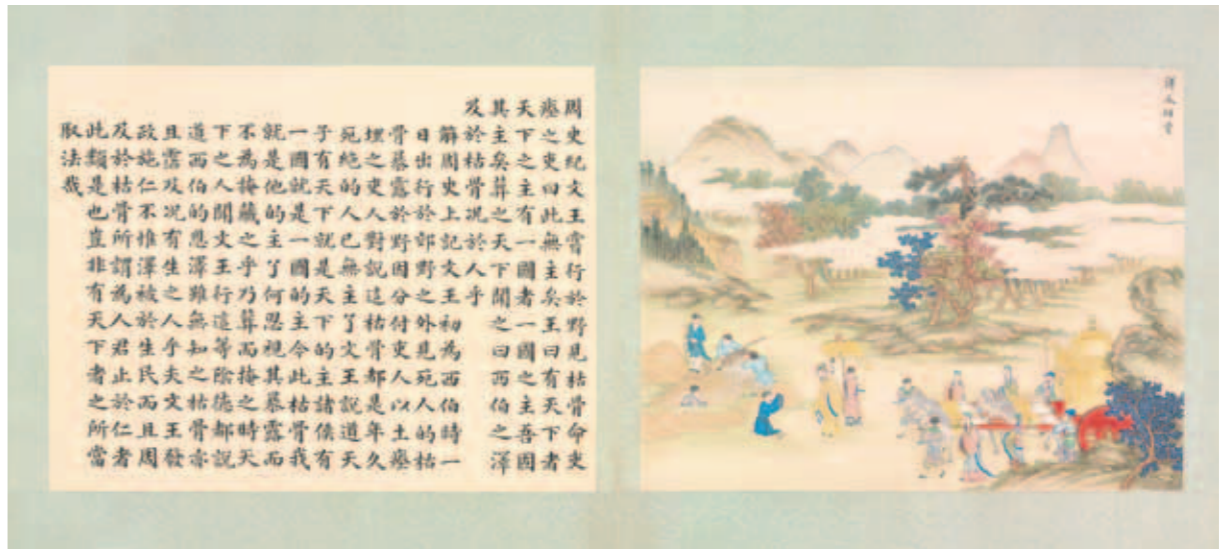 澤及枯骨
周史紀文王嘗行於野見枯骨命吏
瘞之吏曰此無主矣王曰有天下者
天下之主有一國者一國之主吾固
其主矣葬之天下聞之曰西伯之澤
及於枯骨況於人乎
解周史上記文王初為西伯時一
日出行於郊野之外見死人的枯
骨暴露於野因分付吏人以土瘞
埋之吏人對說這枯骨都是年久
死絕的人已無主了文王說道天
子有天下就是天下的主諸侯有
一國就是一國的主今此枯骨我
就是他的主了何忍視其暴露而
不為掩藏之乎乃葬而掩之時天
下之人聞文王行這等陰德都說
道西伯的恩澤雖無知之枯骨亦
且霑及況有生之人乎夫文王發
政施仁不惟澤被於生民而且周
及於枯骨所謂為人君止於仁者
此類是也豈非有天下者之所當
取法哉